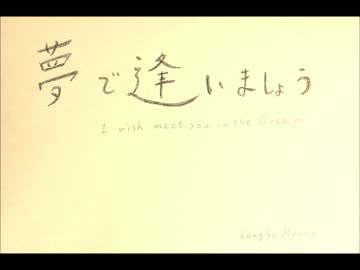 夢で逢いましょう
I wish meet you in the Dream